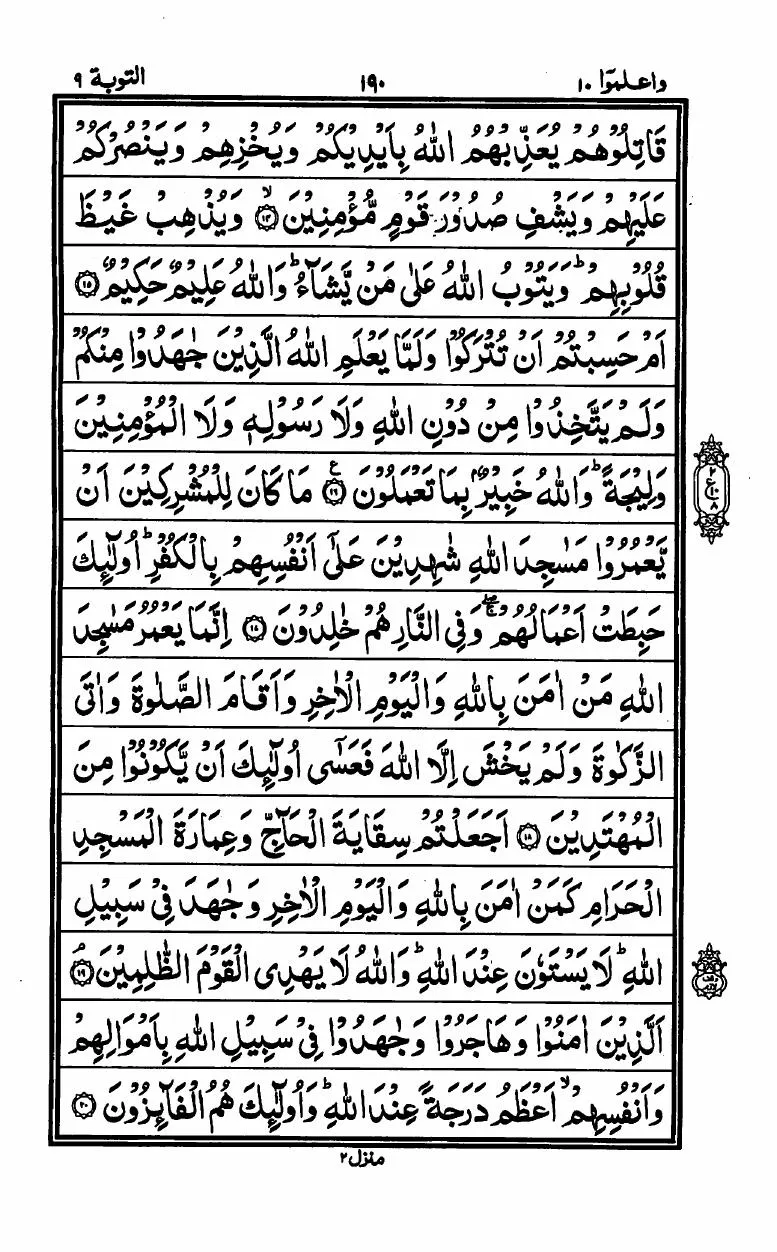 واعلموٓا ١٠ ١٩٠ التوبة ٩
قَاتِلُوْهُمْ يُعَذِّبْهُمُ اللّٰهُ بِاَيْدِيْكُمْ وَيُخْزِهِمْ وَيَنْصُرْكُمْ
عَلَيْهِمْ وَيَشْفِ صُدُوْرَ قَوْمٍ مُّؤْمِنِيْنَ ۙ ﴿١٤﴾ وَيُذْهِبْ غَيْظَ
قُلُوْبِهِمْ ؕ وَيَتُوْبُ اللّٰهُ عَلٰى مَنْ يَّشَآءُ ؕ وَاللّٰهُ عَلِيْمٌ حَكِيْمٌ ﴿١٥﴾
اَمْ حَسِبْتُمْ اَنْ تُتْرَكُوْا وَلَمَّا يَعْلَمِ اللّٰهُ الَّذِيْنَ جٰهَدُوْا مِنْكُمْ
وَلَمْ يَتَّخِذُوْا مِنْ دُوْنِ اللّٰهِ وَلَا رَسُوْلِهٖ وَلَا الْمُؤْمِنِيْنَ
وَلِيْجَةً ؕ وَاللّٰهُ خَبِيْرٌۢ بِمَا تَعْمَلُوْنَ ﴿١٦﴾ ع مَا كَانَ لِلْمُشْرِكِيْنَ اَنْ
يَّعْمُرُوْا مَسٰجِدَ اللّٰهِ شٰهِدِيْنَ عَلٰٓى اَنْفُسِهِمْ بِالْكُفْرِ ؕ اُولٰٓئِكَ
حَبِطَتْ اَعْمَالُهُمْ ۖۚ وَفِى النَّارِ هُمْ خٰلِدُوْنَ ﴿١٧﴾ اِنَّمَا يَعْمُرُ مَسٰجِدَ
اللّٰهِ مَنْ اٰمَنَ بِاللّٰهِ وَالْيَوْمِ الْاٰخِرِ وَاَقَامَ الصَّلٰوةَ وَاٰتَى
الزَّكٰوةَ وَلَمْ يَخْشَ اِلَّا اللّٰهَ فَعَسٰٓى اُولٰٓئِكَ اَنْ يَّكُوْنُوْا مِنَ
الْمُهْتَدِيْنَ ﴿١٨﴾ اَجَعَلْتُمْ سِقَايَةَ الْحَآجِّ وَعِمَارَةَ الْمَسْجِدِ
الْحَرَامِ كَمَنْ اٰمَنَ بِاللّٰهِ وَالْيَوْمِ الْاٰخِرِ وَجٰهَدَ فِىْ سَبِيْلِ
اللّٰهِ ؕ لَا يَسْتَوٗنَ عِنْدَ اللّٰهِ ؕ وَاللّٰهُ لَا يَهْدِى الْقَوْمَ الظّٰلِمِيْنَ ۘ ﴿١٩﴾
اَلَّذِيْنَ اٰمَنُوْا وَهَاجَرُوْا وَجٰهَدُوْا فِىْ سَبِيْلِ اللّٰهِ بِاَمْوَالِهِمْ
وَاَنْفُسِهِمْ ۙ اَعْظَمُ دَرَجَةً عِنْدَ اللّٰهِ ؕ وَاُولٰٓئِكَ هُمُ الْفَآئِزُوْنَ ﴿٢٠﴾
٢
ع
١٠
٨
منزل ٢